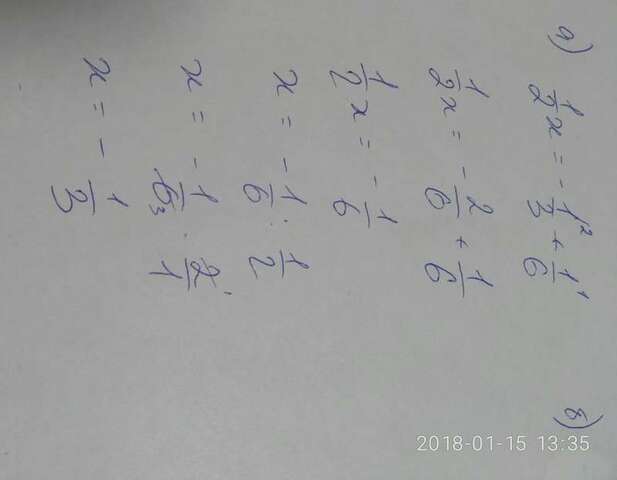 а)
1/2 x = - 1/3 ² + 1/6 ¹
1/2 x = - 2/6 + 1/6
1/2 x = - 1/6
x = - 1/6 : 1/2
x = - 1/6 ₃ · 2/1 ¹
x = - 1/3
б)
2018-01-15 13:35